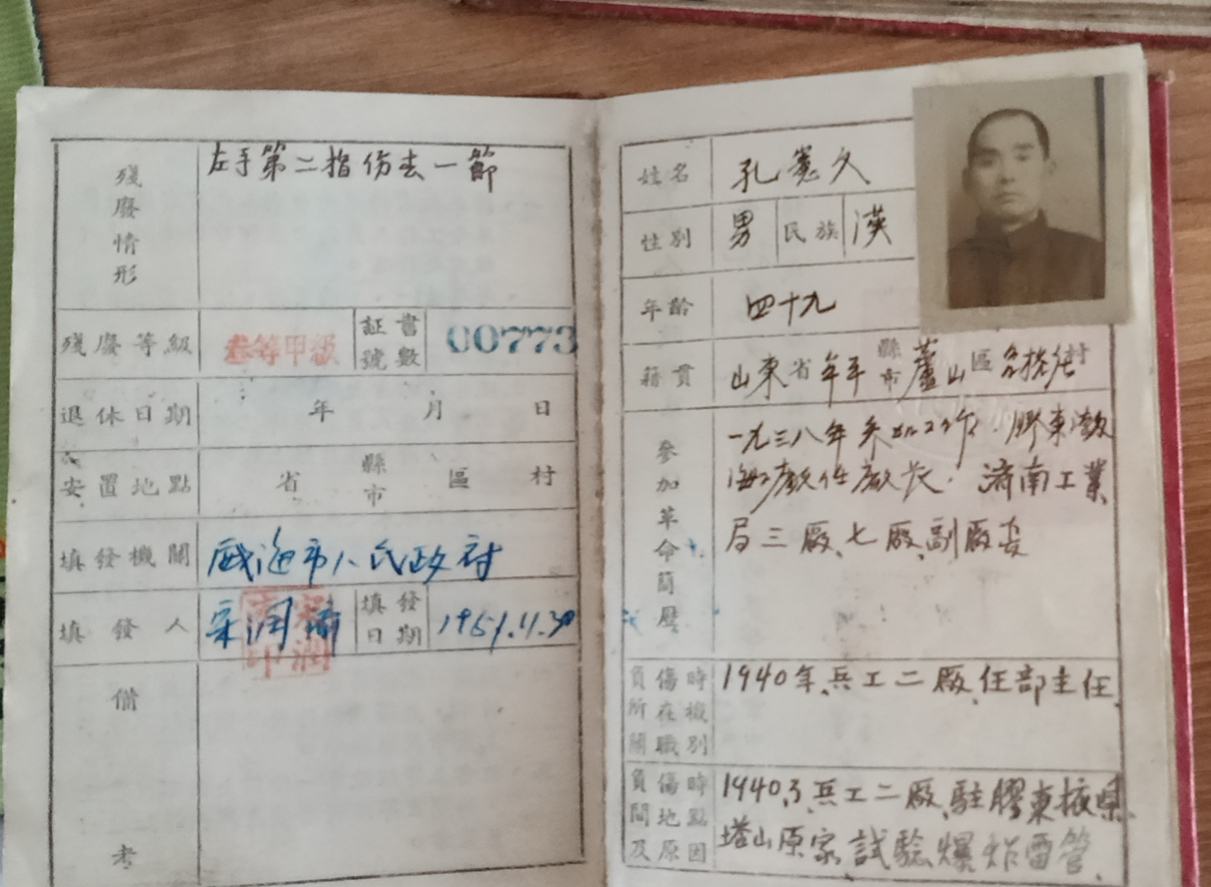 殘廢情形 左手第二指伤去一節
殘廢等級 叁等甲級 証書號數 00773
退休日期 年 月 日
安置地點 省 縣市 區 村
填發機關 市人民政府
填發人 宋润 填發日期 195
備考
姓名 孔憲久
性別 男 民族 漢
年齡 四十九
籍貫 山東省 牟平縣市 蘆山區 村
參加革命簡歷 一九三八年参加工作．膠東渤
海廠任廠长．濟南工業
局三廠、七廠、副廠長
負傷時所在機關職別 1940年、兵工二廠、任部主任
負傷時間地點及原因 1940、3、兵工二廠、駐膠東掖県、
塔山原家、試驗爆炸雷管、